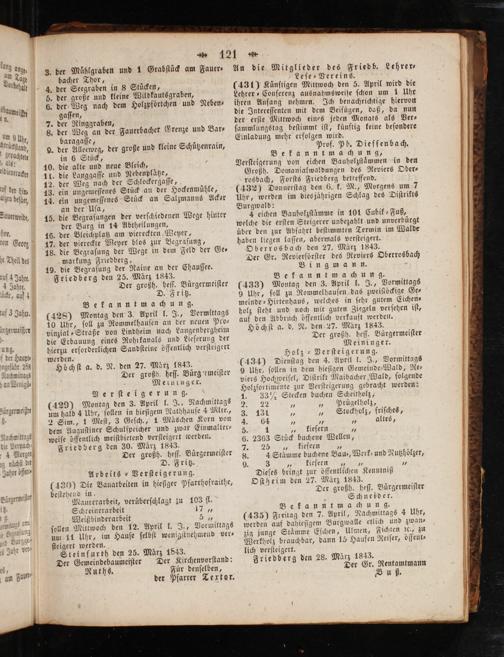 121
3. der Mühlgraben und 1 Grabstück am Fauer-
bacher Thor,
4. der Seegraben in 8 Stücken,
5. der große und kleine Wildkautsgraben,
6. der Weg nach dem Holzpförtchen und Neben-
gassen,
7. der Ringgraben,
8. der Weg an der Fauerbacher Grenze und Bar-
baragasse,
9. der Allerweg, der große und kleine Schützenrain,
in 6 Stück,
10. die alte und neue Bleich,
11. die Langgasse und Nebenpfähe,
12. der Weg nach der Schlosbergasse,
13. ein ungemessenes Stück an der Hockenmühle,
14. ein ungemessenes Stück an Salzmanns Acker
an der Usa,
15. die Begrasungen der verschiedenen Wege hinter
der Burg in 14 Abtheilungen,
16. der Bleichplatz am vierecken Weyer,
17. der vierecte Weyer blos zur Begrasung,
18. die Begrasung der Wege in dem Feld der Ge-
markung Friedberg,
19. die Begrasung der Raine an der Chaussee.
Friedberg den 25. März 1843.
Der großh. hess. Bürgermeister
D. Fritz.
Bekanntmachung.
(428) Montag den 3. April l. J., Vormittags
10 Uhr, soll zu Rommelhausen an der neuen Pro-
vinzial-Straße von Lindheim nach Langenbergheim
die Erbauung eines Rohrkanals und Lieferung der
hierzu erforderlichen Sandsteine öffentlich versteigert
werden.
Höchst a. d. N. den 27. März 1843.
Der großh. hess. Bürgermeister
Meininger.
Versteigerung.
(429) Montag den 3. April l. J., Nachmittags
um halb 4 Uhr, sollen in hiesigem Rathhause 4 Mltr.,
2 Sim., 1 Mest, 3 Gesch., 1 Mäschen Korn von
dem Augustiner Schulspeicher und zwar Einmalter-
weise öffentlich meistbietend versteigert werden.
Friedberg den 30. März 1843.
Der großh. hess. Bürgermeister
D. Fritz.
Arbeits-Versteigerung.
(430) Die Bauarbeiten in hiesiger Pfarrhofraithe,
bestehend in
Maurerarbeit, veräberschlagt zu 103 fl.
Schreinerarbeit 17 „
Weißbinderarbeit 5 „
sollen Mittwoch den 12. April l. J., Vormittags
um 11 Uhr, im Hause selbst wenigstnehmend ver-
steigert werden.
Steinfurth den 25. März 1843.
Der Gemeindebaumeister Der Kirchenvorstand:
Ruths. Für denselben,
der Pfarrer Textor.
An die Mitglieder des Friedb. Lehrer-
Lese-Vereins.
(431) Künftigen Mittwoch den 5. April wird die
Lehrer-Conferenz ausnahmsweise schon um 1 Uhr
ihren Anfang nehmen. Ich benachrichtige hiervon
die Interessenten mit dem Beifügen, daß, da nun
der erste Mittwoch eines jeden Monats als Ver-
sammlungstag bestimmt ist, künftig keine besondere
Einladung mehr erfolgen wird.
Prof. Ph. Dieffenbach.
Bekanntmachung,
Versteigerung von eichen Bauholzstämmen in den
Großh. Domanialwaldungen des Reviers Ober-
rosbach, Forsts Friedberg betreffend.
(432) Donnerstag den 6. k. M., Morgens um 7
Uhr, werden im diesjährigen Schlag des Distrikts
Burgwald:
4 eichen Bauholzstämme in 101 Cubik-Fuß,
welche die ersten Steigerer unbezahlt und unverbürgt
über den zur Abfahrt bestimmten Termin im Walde
haben liegen lassen, abermals versteigert.
Oberrosbach den 27. März 1843.
Der Gr. Revierförster des Reviers Oberrosbach
Bingmann.
Bekanntmachung.
(433) Montag den 3. April l. J., Vormittags
9 Uhr, soll zu Rommelhausen das zweistöckige Ge-
meinde-Hirtenhaus, welches in sehr gutem Eichen-
holz steht und noch mit guten Ziegeln versehen ist,
auf den Abbruch öffentlich verkauft werden.
Höchst a. d. N. den 27. März 1843.
Der großh. hess. Bürgermeister
Meininger.
Holz-Versteigerung.
(434) Dienstag den 4. April l. J., Vormittags
9 Uhr, sollen in dem hiesigen Gemeinde-Wald, Re-
viers Hochweisel, Distrikt Maibacher Wald, folgende
Holzsortimente zur Versteigerung gebracht werden:
1. 33¼ Stecken buchen Scheitholz,
2. 22 „ „ Prügelholz,
3. 131 „ „ Stockholz, frisches,
4. 64 „ „ „ altes,
5. 1 „ kiefern „
6. 2363 Stück buchene Wellen,
7. 25 „ kiefern „
8. 4 Stämme buchene Bau-, Werk- und Nutzhölzer,
9. 3 „ kiefern „ „ „
Dieses bringt zur öffentlichen Kenntniß
Ostheim den 27. März 1843.
Der großh. hess. Bürgermeister
Schneider.
Bekanntmachung.
(435) Freitag den 7. April, Nachmittags 4 Uhr,
werden auf dahiesigem Burgwalle etlich und zwan-
zig junge Stämme Eschen, Ulmen, Fichten ꝛc., zu
Werkholz brauchbar, dann 15 Haufen Reiser, öffent-
lich versteigert.
Friedberg den 28. März 1843.
Der Gr. Rentamtmann
Buß.